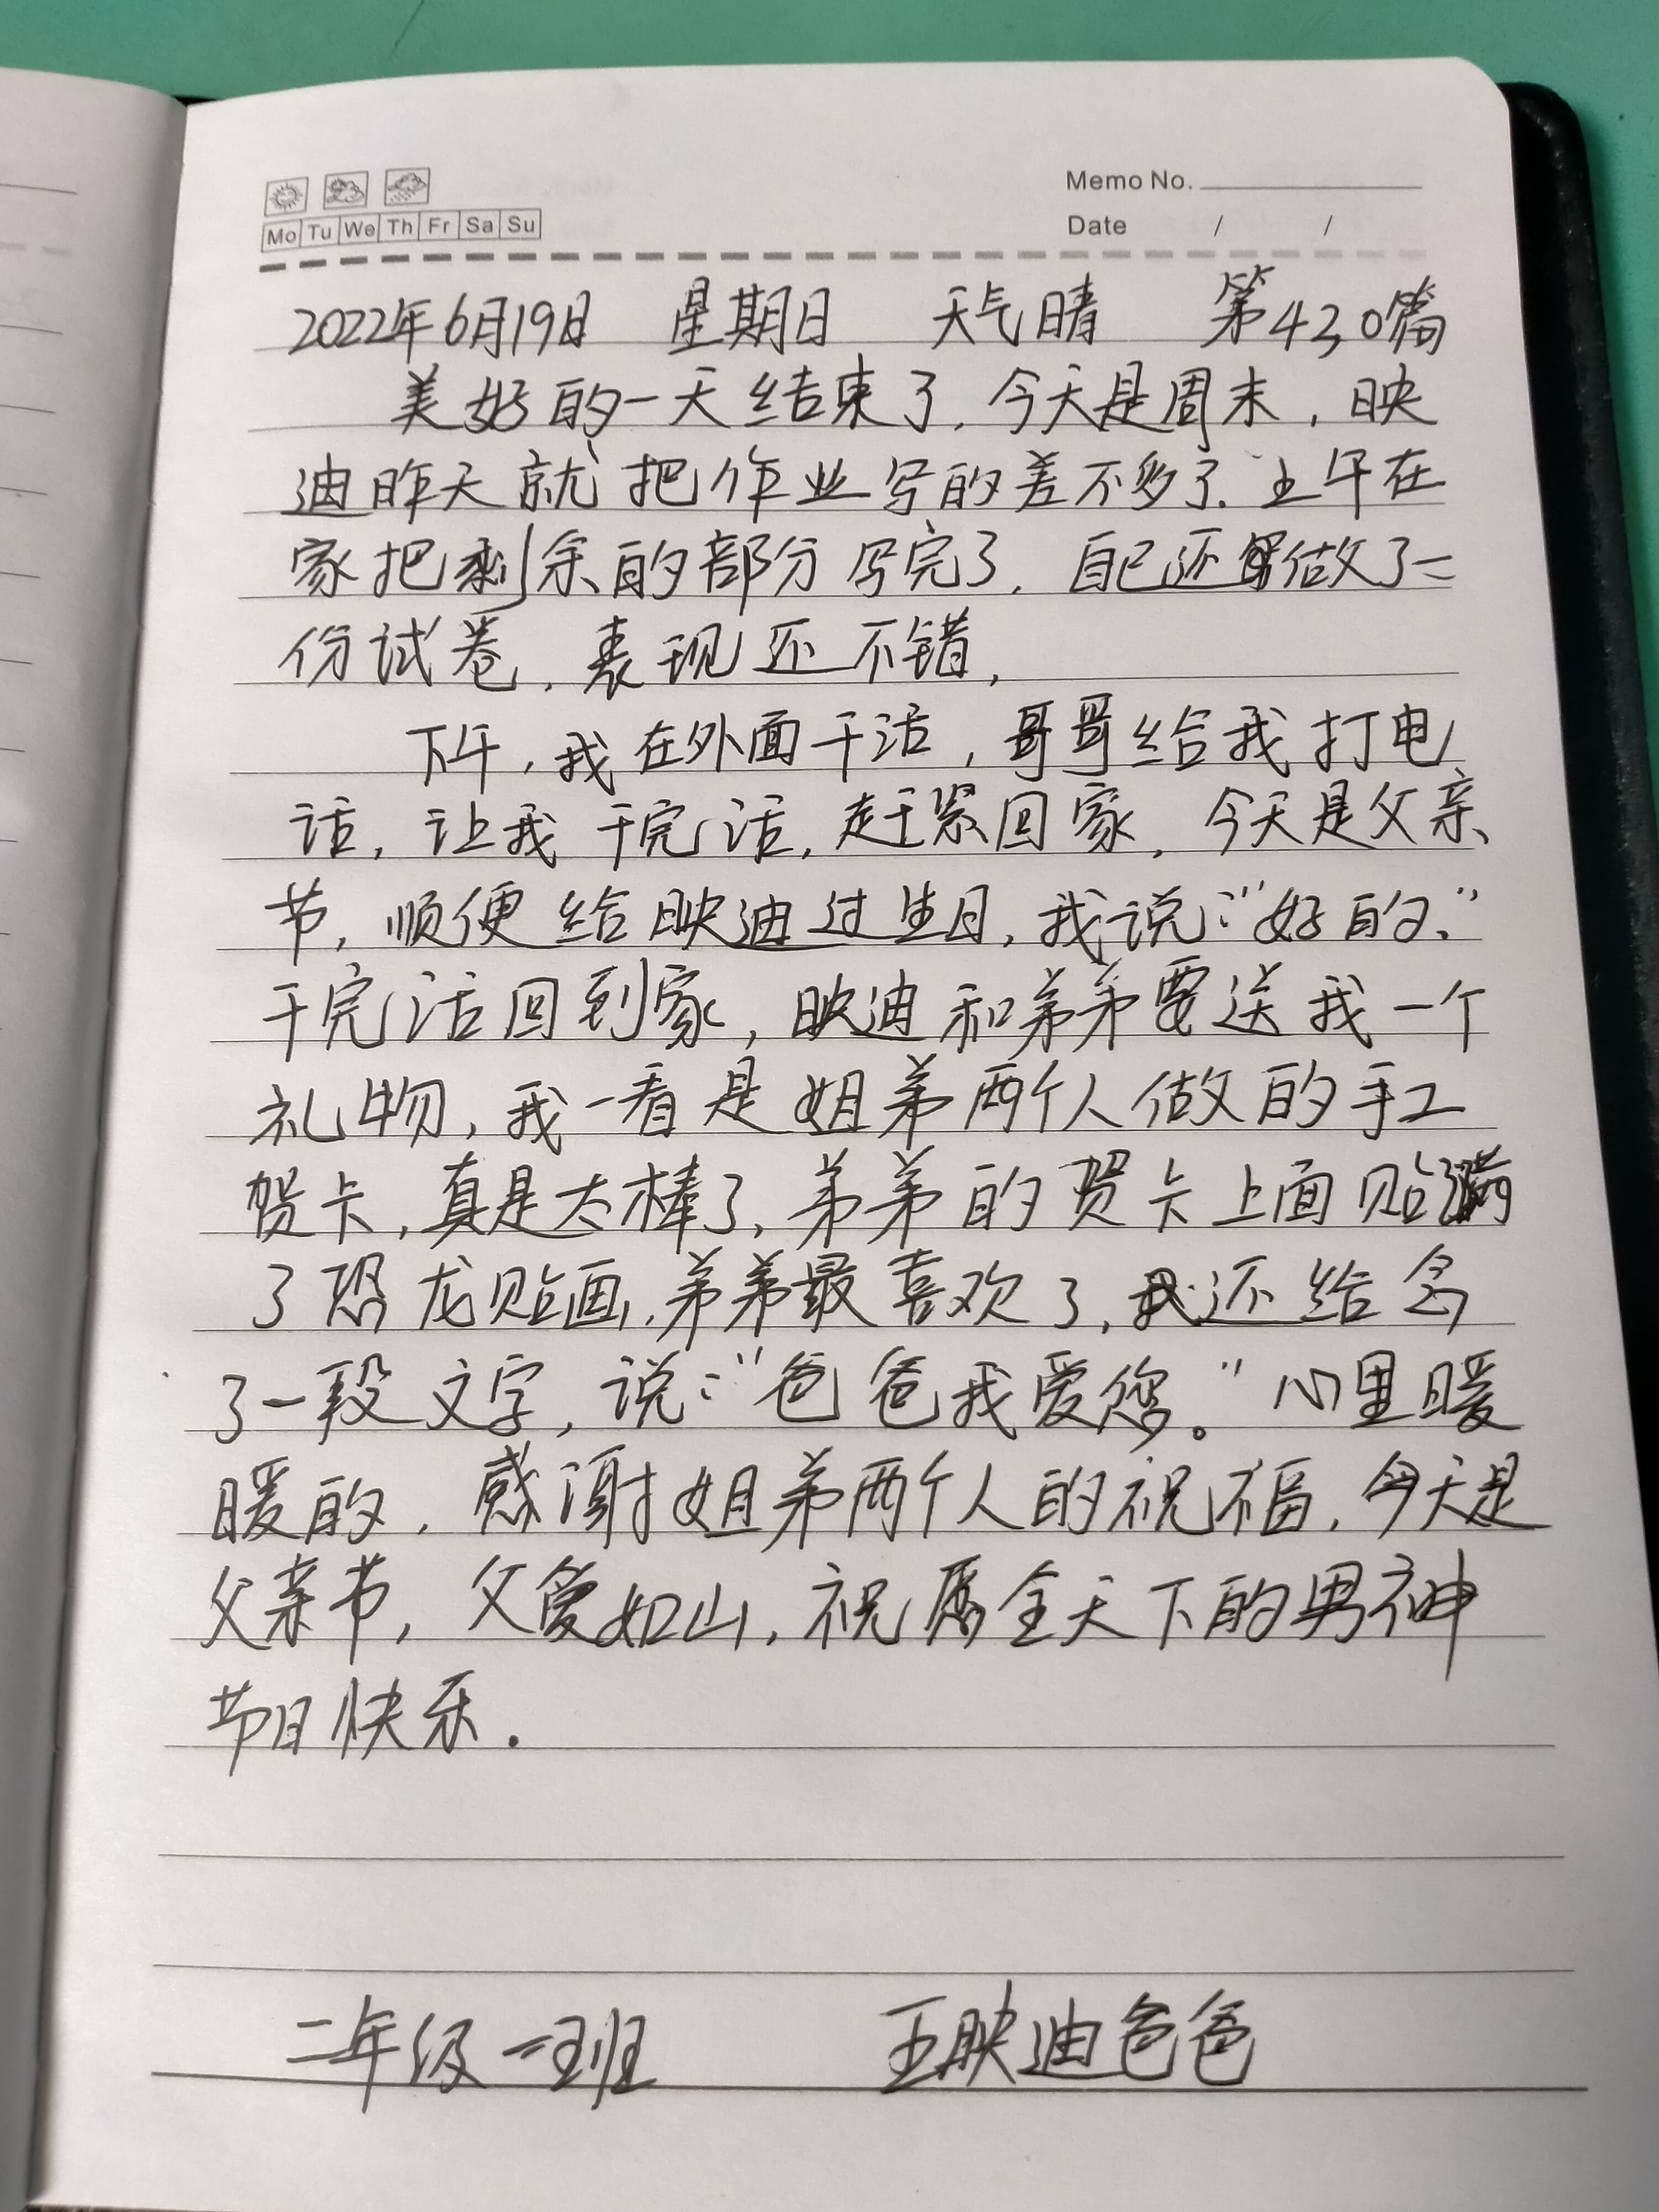 Memo No.
Mo Tu We Th Fr Sa Su
Date / /
2022年6月19日 星期日 天气晴 第430篇
美好的一天结束了.今天是周末,映
迪昨天就把作业写的差不多了.上午在
家把剩余的部分写完了.自己还做了二
份试卷.表现还不错.
下午,我在外面干活,哥哥给我打电
话,让我干完活,赶紧回家.今天是父亲
节,顺便给映迪过生日,我说:"好的."
干完活回到家,映迪和弟弟要送我一个
礼物,我一看是姐弟两个人做的手工
贺卡,真是太棒了,弟弟的贺卡上面贴满
了恐龙贴画.弟弟最喜欢了,我还给念
了一段文字,说:"爸爸我爱您。"心里暖
暖的.感谢姐弟两个人的祝福.今天是
父亲节,父爱如山,祝愿全天下的男神
节日快乐.
二年级一班 王映迪爸爸